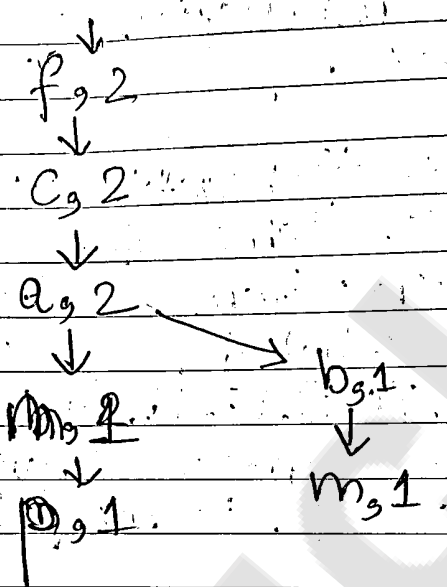 f, 2
c, 2
a, 2
b, 1
m, 1
m, 1
p, 1